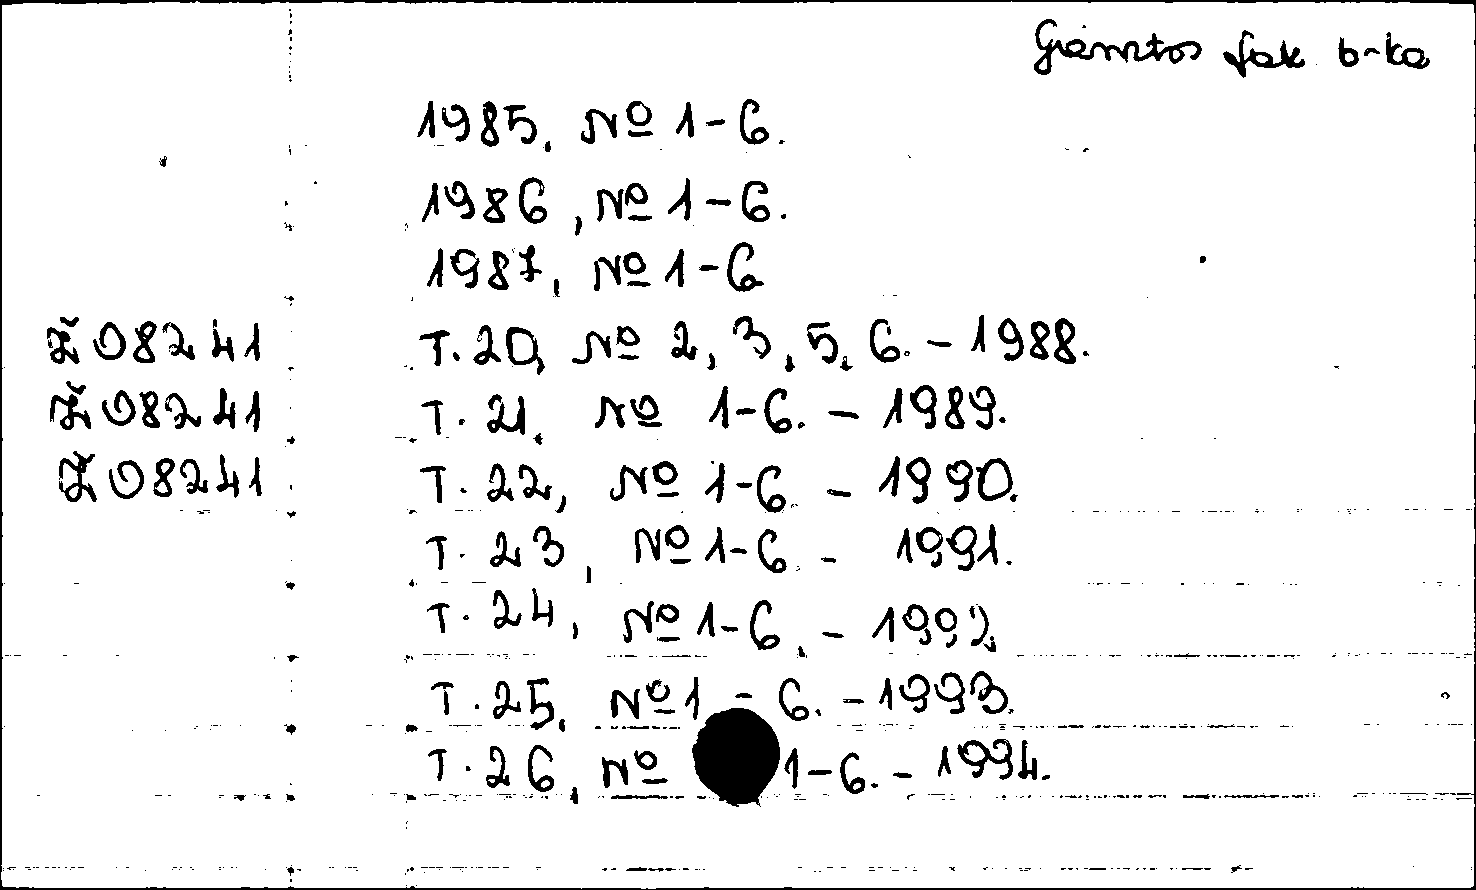 Gamtos fak b-ka
1985, № 1-6.
1986, № 1-6.
1987, № 1-6
Ž 08241 T. 20, № 2, 3, 5, 6. - 1988.
Ž 08241 T. 21, № 1-6. - 1989.
Ž 08241 T. 22, № 1-6. - 1990.
T. 23, № 1-6. - 1991.
T. 24, № 1-6. - 1992.
T. 25, № 1 - 6. - 1993.
T. 26, № 1-6. - 1994.